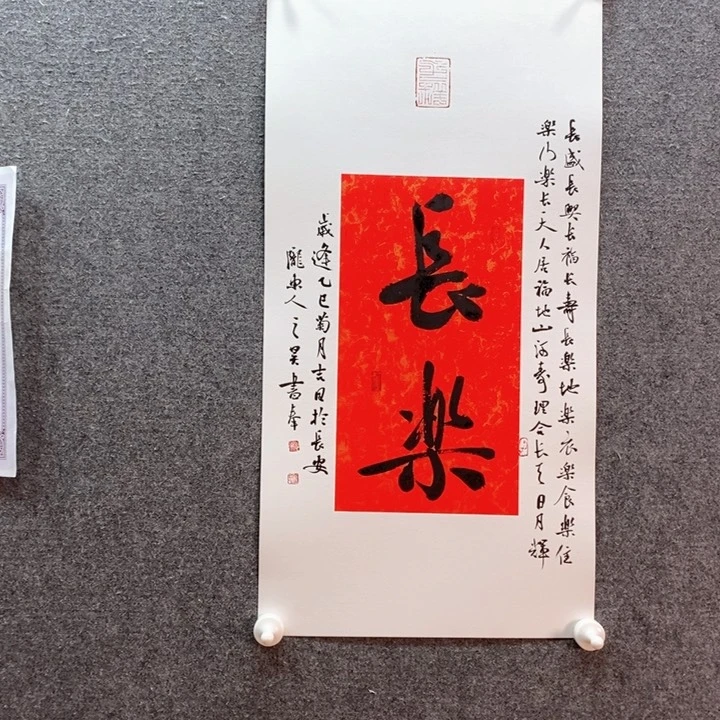 長樂
長盛長興長福長壽長樂地樂衣樂食樂住
樂行樂長天人居福地山河壽理合長天日月輝
歲逢乙巳菊月吉日於長安
隴東人之昊書奉